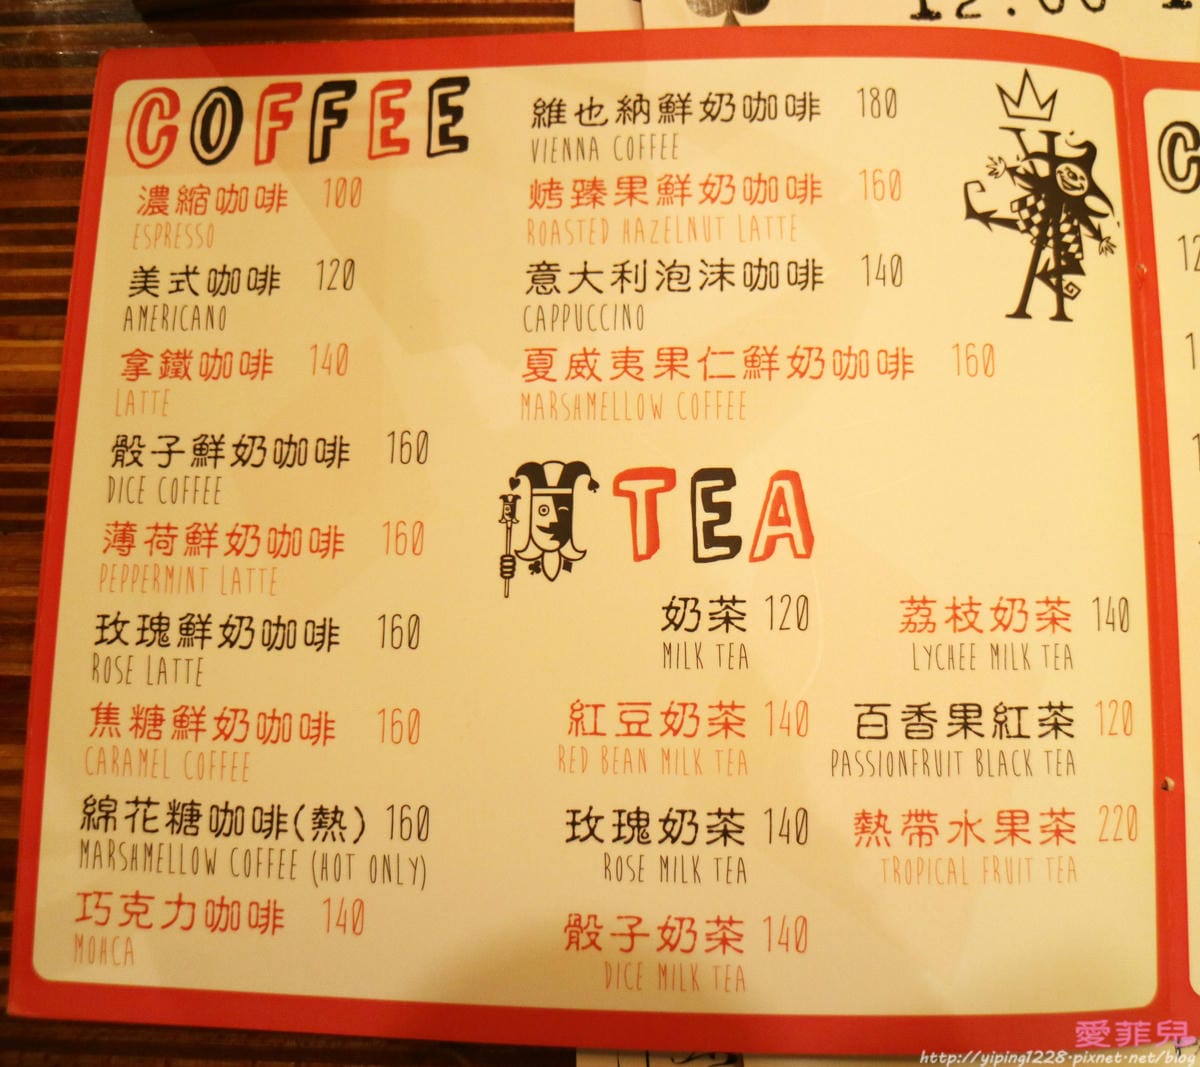 12:00
COFFEE
濃縮咖啡 100
ESPRESSO
美式咖啡 120
AMERICANO
拿鐵咖啡 140
LATTE
骰子鮮奶咖啡 160
DICE COFFEE
薄荷鮮奶咖啡 160
PEPPERMINT LATTE
玫瑰鮮奶咖啡 160
ROSE LATTE
焦糖鮮奶咖啡 160
CARAMEL COFFEE
綿花糖咖啡(熱) 160
MARSHMELLOW COFFEE (HOT ONLY)
巧克力咖啡 140
MOHCA
維也納鮮奶咖啡 180
VIENNA COFFEE
烤臻果鮮奶咖啡 160
ROASTED HAZELNUT LATTE
意大利泡沫咖啡 140
CAPPUCCINO
夏威夷果仁鮮奶咖啡 160
MARSHMELLOW COFFEE
TEA
奶茶 120
MILK TEA
紅豆奶茶 140
RED BEAN MILK TEA
玫瑰奶茶 140
ROSE MILK TEA
骰子奶茶 140
DICE MILK TEA
荔枝奶茶 140
LYCHEE MILK TEA
百香果紅茶 120
PASSIONFRUIT BLACK TEA
熱帶水果茶 220
TROPICAL FRUIT TEA
愛菲兒
http://yiping1228.pixnet.net/blog